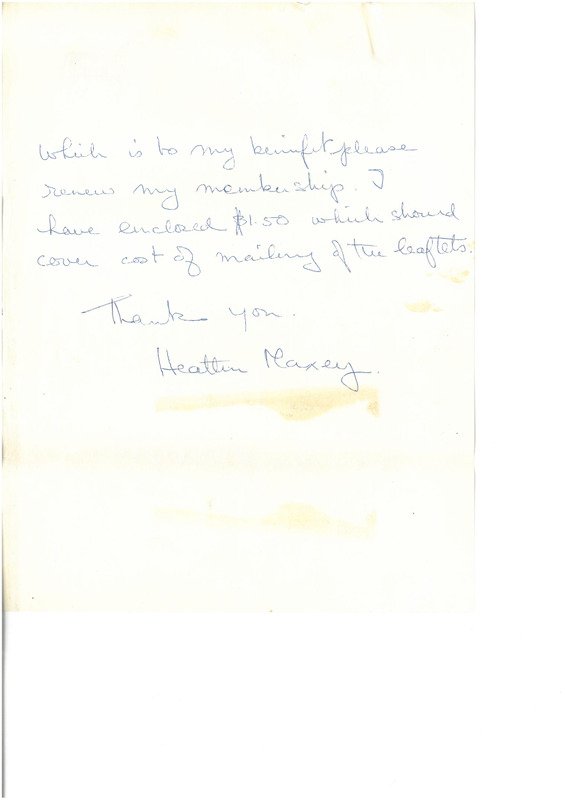 which is to my beinifit please
renew my membership. I
have enclosed $1.50 which should
cover cost of mailing of the leaflets.
Thank you.
Heather Maxey.